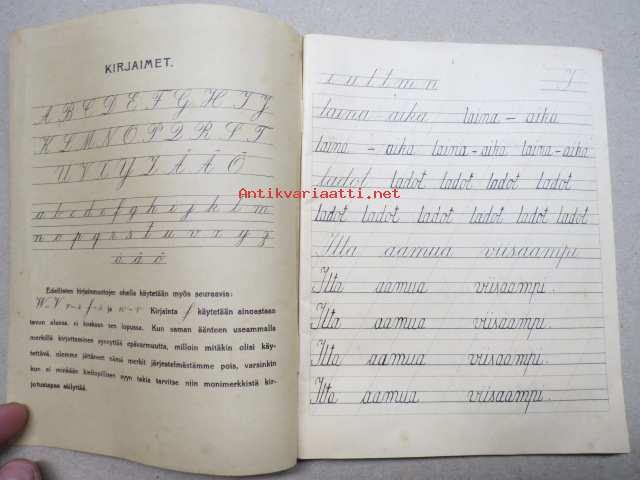 KIRJAIMET.
A B C D E F G H I J
K L M N O P Q R S T
U V X Y Z Å Ä Ö
a b c d e f g h i j k l m
n o p q r s t u v x y z
å ä ö
Edellisten kirjainmuotojen ohella käytetään myös seuraavia:
Kirjainta f käytetään ainoastaan
tavun alussa, ei koskaan sen lopussa. Kun saman äänteen useammalla
merkillä kirjoittaminen synnyttää epävarmuutta, milloin mitäkin olisi käy-
tettävä, olemme jättäneet nämä merkit järjestelmästämme pois, varsinkin
kun ei minkään kieliopillisen syyn takia tarvitse niin monimerkkistä kir-
joitustapaa säilyttää.
1
i u t l m n
laina aika laina - aika
laina - aika laina - aika laina - aika
ladot ladot ladot ladot ladot
ladot ladot ladot ladot ladot ladot
Ilta aamua viisaampi.
Ilta aamua viisaampi.
Ilta aamua viisaampi.
Ilta aamua viisaampi.
Ilta aamua viisaampi.
Antikvariaatti.net